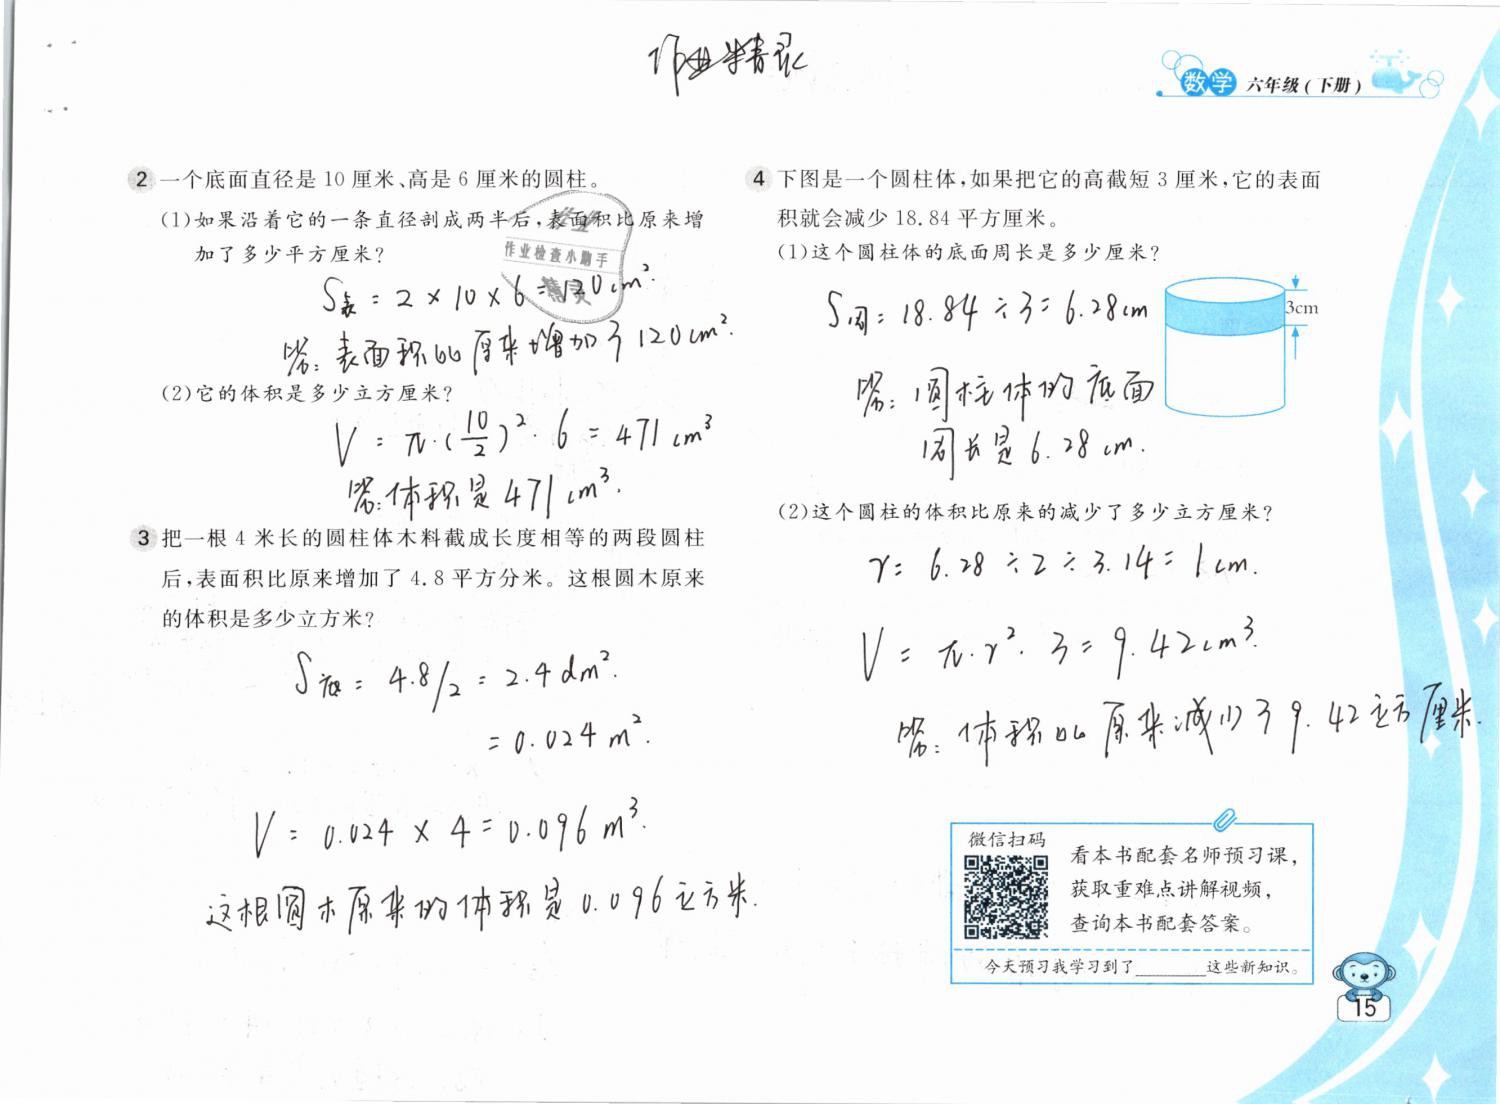 作业精灵
数学 六年级(下册)
2 一个底面直径是 10 厘米、高是 6 厘米的圆柱。
(1)如果沿着它的一条直径剖成两半后,表面积比原来增
加了多少平方厘米?
作业检查小助手
S表 = 2 × 10 × 6 = 120 cm².
答: 表面积比原来增加了 120 cm².
(2)它的体积是多少立方厘米?
V = π·(10/2)²·6 = 471 cm³
答: 体积是 471 cm³.
3 把一根 4 米长的圆柱体木料截成长度相等的两段圆柱
后,表面积比原来增加了 4.8 平方分米。这根圆木原来
的体积是多少立方米?
S底 = 4.8/2 = 2.4 dm².
= 0.024 m².
V = 0.024 × 4 = 0.096 m³.
这根圆木原来的体积是 0.096 立方米.
4 下图是一个圆柱体,如果把它的高截短 3 厘米,它的表面
积就会减少 18.84 平方厘米。
(1)这个圆柱体的底面周长是多少厘米?
S周 = 18.84 ÷ 3 = 6.28 cm
3cm
答: 圆柱体的底面
周长是 6.28 cm.
(2)这个圆柱的体积比原来的减少了多少立方厘米?
r = 6.28 ÷ 2 ÷ 3.14 = 1 cm.
V = π·r²·3 = 9.42 cm³.
答: 体积比原来减少了 9.42 立方厘米.
微信扫码
看本书配套名师预习课,
获取重难点讲解视频,
查询本书配套答案。
今天预习我学习到了______这些新知识。
15